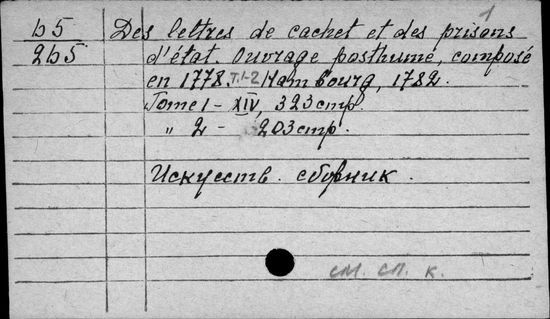 1
Ъ5 Des lettres de cachet et des prisons
2Ъ5 d'état. Ouvrage posthume, composé
en 1778. T.1-2 Hambourg, 1782.
Tome 1 - XIV, 323стр.
" 2 - 203стр.
Искусств. сборник.
см. сп. к.